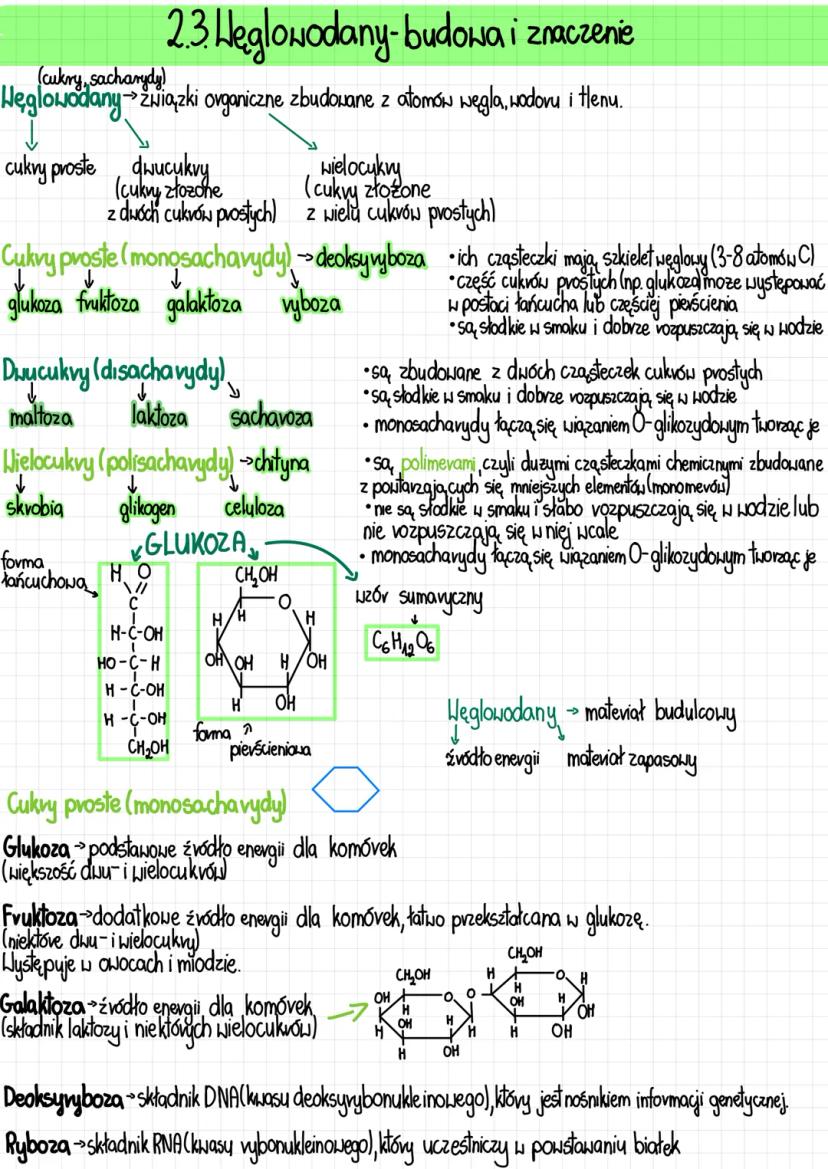 2.3. Węglowodany-budowa i znaczenie
(cukry, sacharydy)
Węglowodany → związki organiczne zbudowane z atomów węgla, wodoru i tlenu.
cukry proste
dwucukry
(cukry złożone
z dwóch cukrów prostych)
wielocukry
(cukry złożone
z wielu cukrów prostych)
Cukry proste (monosacharydy) → deoksyryboza
glukoza fruktoza galaktoza ryboza
• ich cząsteczki mają szkielet węglowy (3-8 atomów C)
• część cukrów prostych (np. glukoza) może występować
w postaci łańcucha lub częściej pierścienia
• są słodkie w smaku i dobrze rozpuszczają się w wodzie
Dwucukry (disacharydy)
maltoza laktoza sacharoza
• są zbudowane z dwóch cząsteczek cukrów prostych
• są słodkie w smaku i dobrze rozpuszczają się w wodzie
• monosacharydy łączą się wiązaniem O-glikozydowym tworząc je
Wielocukry (polisacharydy) → chityna
skrobia glikogen celuloza
• są polimerami, czyli dużymi cząsteczkami chemicznymi zbudowane
z powtarzających się mniejszych elementów (monomerów)
• nie są słodkie w smaku i słabo rozpuszczają się w wodzie lub
nie rozpuszczają się w niej wcale
• monosacharydy łączą się wiązaniem O-glikozydowym tworząc je
GLUKOZA
forma
łańcuchowa
H O
C
H-C-OH
HO-C-H
H-C-OH
H-C-OH
CH₂OH
CH₂OH
O
H H H
OH OH H OH
H OH
forma
pierścieniowa
wzór sumaryczny
C₆H₁₂O₆
Węglowodany → materiał budulcowy
źródło energii materiał zapasowy
Cukry proste (monosacharydy)
Glukoza → podstawowe źródło energii dla komórek
(większość dwu- i wielocukrów)
Fruktoza → dodatkowe źródło energii dla komórek, łatwo przekształcana w glukozę.
(niektóre dwu- i wielocukry)
Występuje w owocach i miodzie.
Galaktoza → źródło energii dla komórek
(składnik laktozy i niektórych wielocukrów)
CH₂OH
CH₂OH
OH O O H O H
H H
OH H OH H OH
H H H
H OH
OH
Deoksyryboza → składnik DNA (kwasu deoksyrybonukleinowego), który jest nośnikiem informacji genetycznej.
Ryboza → składnik RNA (kwasu rybonukleinowego), który uczestniczy w powstawaniu białek